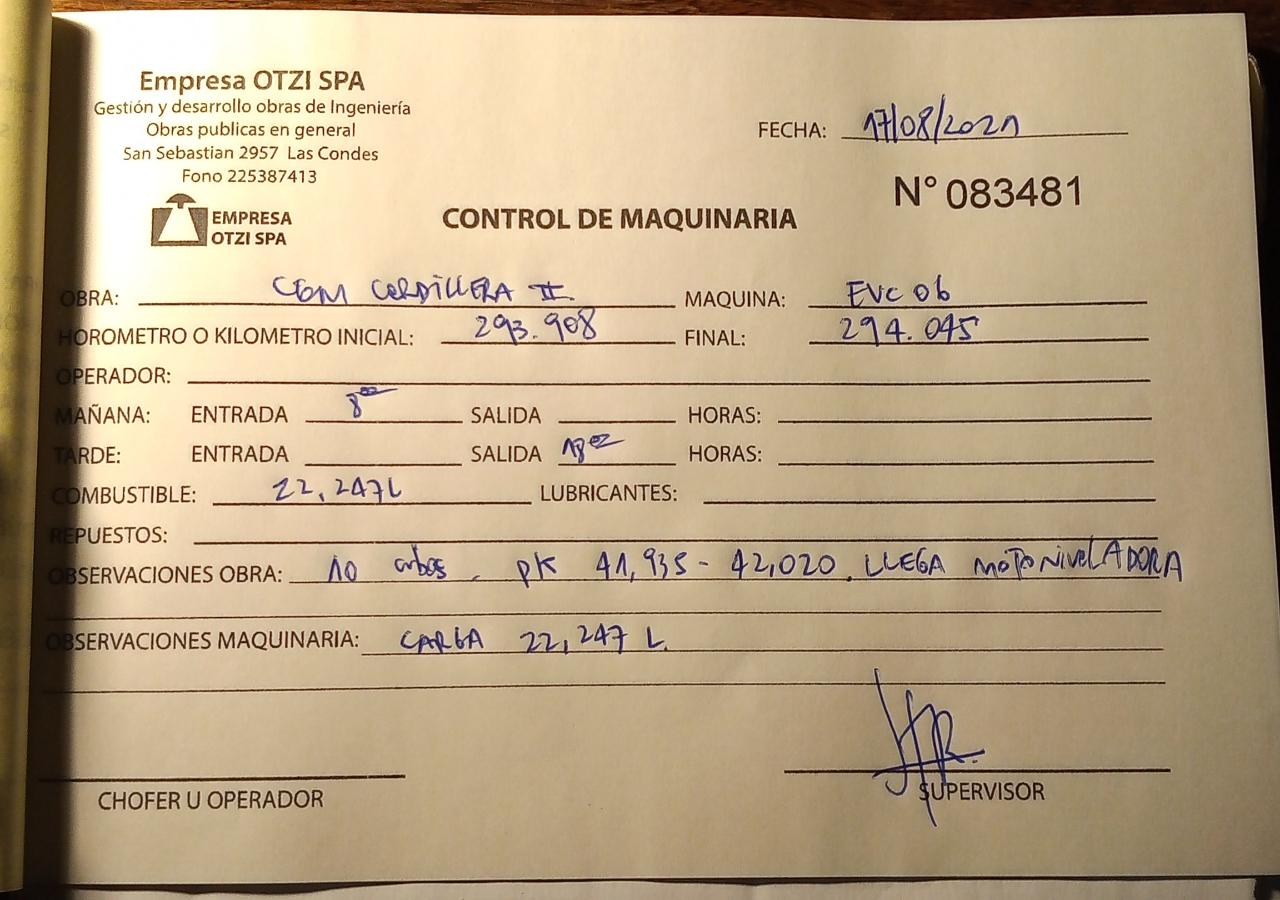 Empresa OTZI SPA
Gestión y desarrollo obras de Ingeniería
Obras publicas en general
San Sebastian 2957 Las Condes
Fono 225387413
EMPRESA
OTZI SPA
FECHA: 17/08/2021
N° 083481
CONTROL DE MAQUINARIA
OBRA: CGM CORDILLERA II. MAQUINA: EVC 06
HOROMETRO O KILOMETRO INICIAL: 293.908 FINAL: 294.045
OPERADOR:
MAÑANA: ENTRADA 8°° SALIDA HORAS:
TARDE: ENTRADA SALIDA 18°° HORAS:
COMBUSTIBLE: 22,247L LUBRICANTES:
REPUESTOS:
OBSERVACIONES OBRA: 10 cubos. PK 41,935 - 42,020. LLEGA MOTONIVELADORA
OBSERVACIONES MAQUINARIA: CARGA 22,247 L.
CHOFER U OPERADOR
SUPERVISOR